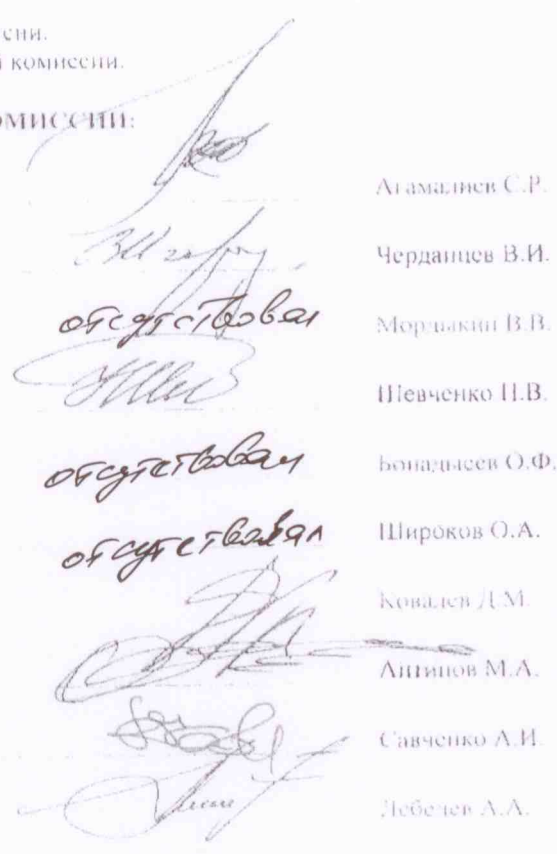 сии.
комиссии.
ОМИССИИ:
Агамалиев С.Р.
Черданцев В.И.
отсутствовал Мордыкин В.В.
Шевченко Н.В.
отсутствовал О.Ф.
отсутствовал Широков О.А.
Ковалев Д.М.
Антипов М.А.
Савченко А.И.
Лебедев А.А.